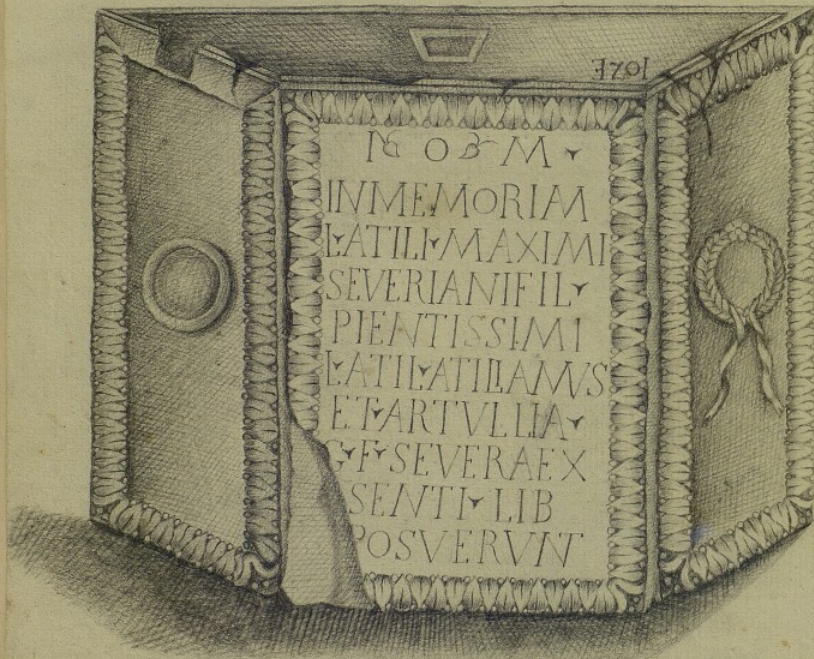 I O M ·
INMEMORIAM
L·ATILI·MAXIMI
SEVERIANIFIL·
PIENTISSIMI
L·ATIL·ATILIANVS
ET·ARTVLLIA·
G·F·SEVERAEX
SENTI·LIB
POSVERVNT